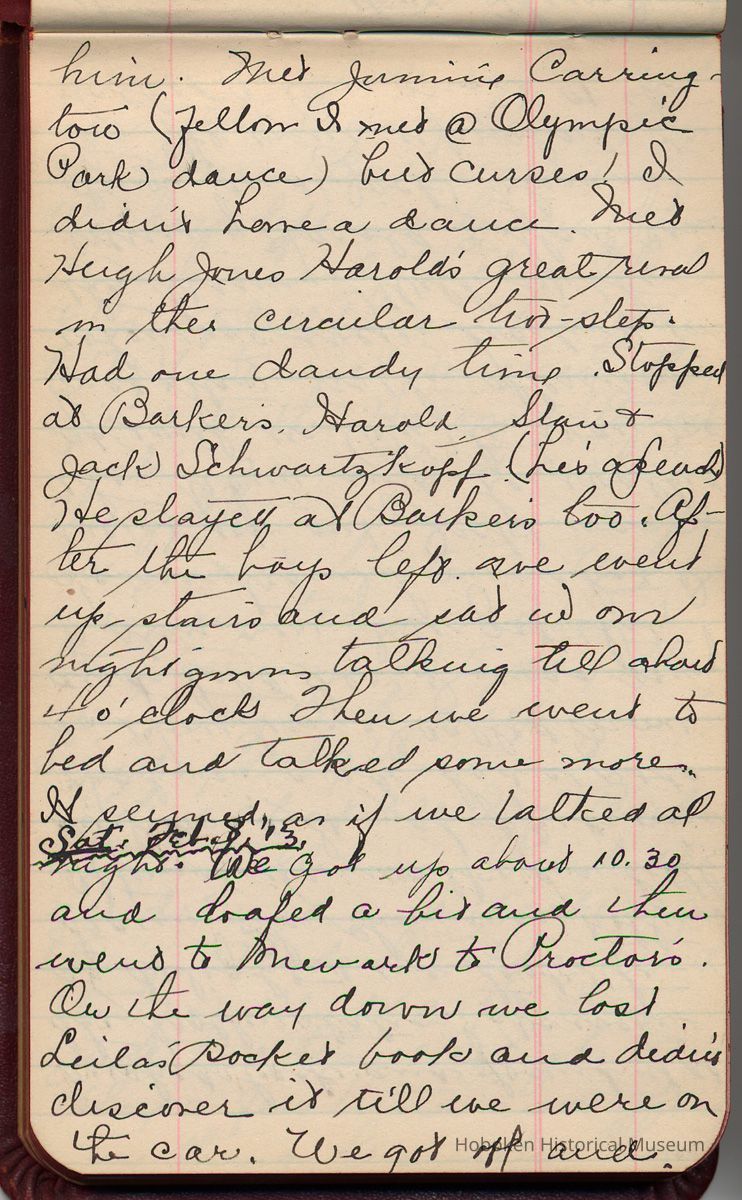 him. Met Jimmie Carring-
ton (fellow I met @ Olympic
Park dance) but curses! I
didn't have a dance. Met
Hugh Jones Harold's great rival
in the circular two-step.
Had one dandy time. Stopped
at Barkers. Harold, Stan &
Jack Schwartzkopf (he's a
He played at Barkers too. Af-
ter the boys left we went
up stairs and sat in our
nightgowns talking till about
4 o'clock Then we went to
bed and talked some more.
It seemed as if we talked all
Sat. Feb. 8, '13.
night. We got up about 10.30
and loafed a bit and then
went to Newark to Proctor's.
On the way down we lost
Leila's Pocket book and didn't
discover it till we were on
the car. We got off and
Hoboken Historical Museum